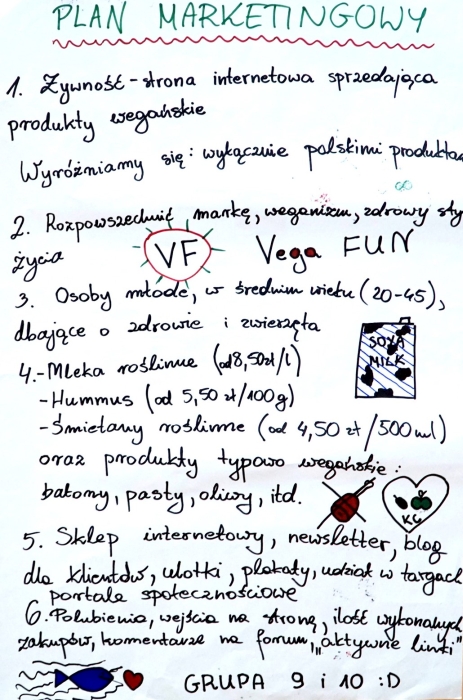 PLAN MARKETINGOWY
1. Żywność - strona internetowa sprzedająca
produkty wegańskie
Wyróżniamy się: wyłącznie polskimi produktam
2. Rozpowszechnić markę, weganizm, zdrowy sty
życia VF Vega FUN
3. Osoby młode, w średnim wieku (20-45),
dbające o zdrowie i zwierzęta
4.-Mleka roślinne (od 8,50zł/l)
SOYA
MILK
-Hummus (od 5,50 zł/100g)
-Śmietany roślinne (od 4,50 zł/500ml)
oraz produkty typowo wegańskie:
batony, pasty, oliwy, itd.
5. Sklep internetowy, newsletter, blog
dla klientów, ulotki, plakaty, udział w targach
portale społecznościowe
6. Polubienia, wejścia na stronę, ilość wykonanych
zakupów, komentarze na forum, "aktywne linki"
GRUPA 9 i 10 :D